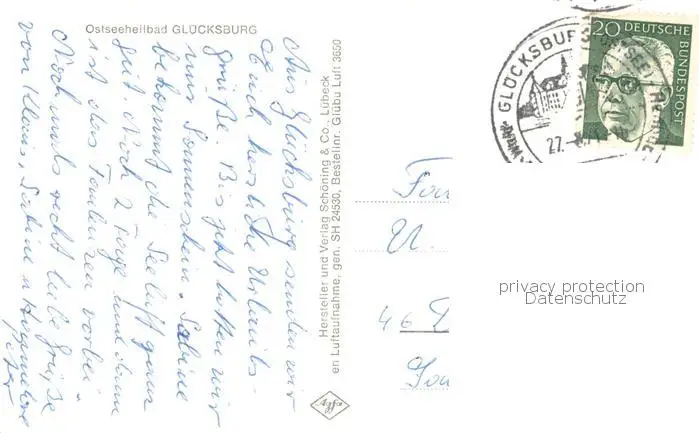 Ostseeheilbad GLÜCKSBURG
Aus Glücksburg senden wir
Euch herzliche Urlaubs-
grüße. Bis jetzt hatten wir
nur Sonnenschein. Sabine
bekommt die Seeluft ganz
gut. Noch 2 Tage und dann
ist das Faulenzen vorbei.
Nochmals recht liebe Grüße
von Klaus, Sabine u.
Hersteller und Verlag Schöning & Co., Lübeck
en Luftaufnahme, gen. SH 24530, Bestellnr. Glübu Luft 3650
Agfa
GLÜCKSBURG (OSTSEE)
27.
20 DEUTSCHE
BUNDESPOST
Fam
U.
46 D
privacy protection
Datenschutz